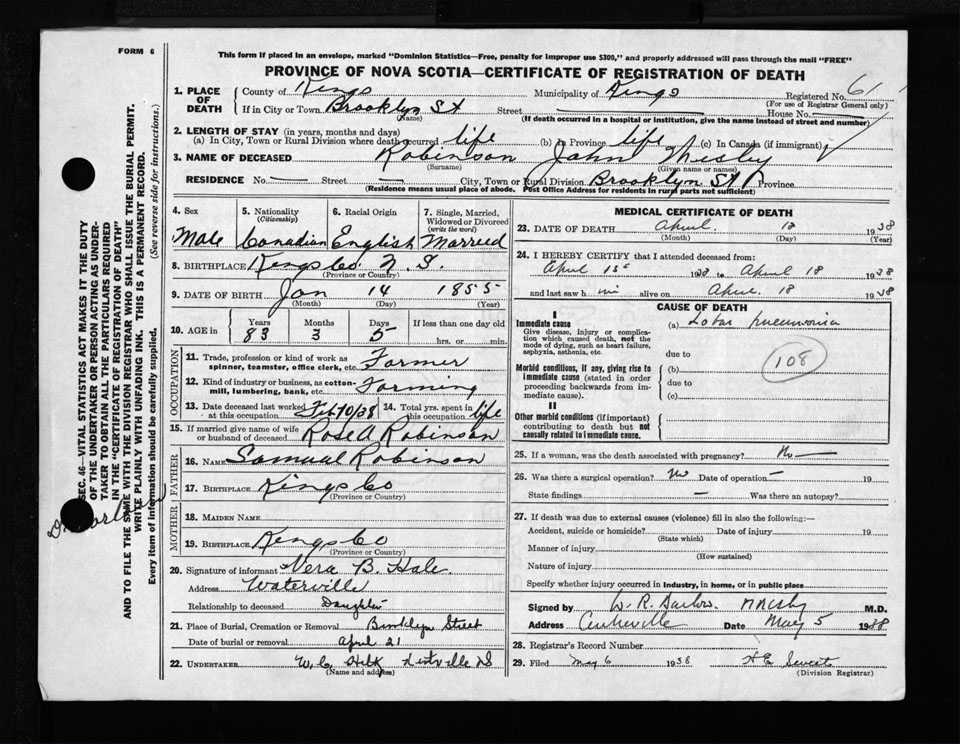 FORM 6
This form if placed in an envelope, marked "Dominion Statistics—Free, penalty for improper use $300," and properly addressed will pass through the mail "FREE"
PROVINCE OF NOVA SCOTIA—CERTIFICATE OF REGISTRATION OF DEATH
SEC. 46—VITAL STATISTICS ACT MAKES IT THE DUTY
OF THE UNDERTAKER OR PERSON ACTING AS UNDER-
TAKER TO OBTAIN ALL THE PARTICULARS REQUIRED
IN THE "CERTIFICATE OF REGISTRATION OF DEATH"
AND TO FILE THE SAME WITH THE DIVISION REGISTRAR WHO SHALL ISSUE THE BURIAL PERMIT.
WRITE PLAINLY WITH UNFADING INK. THIS IS A PERMANENT RECORD.
Every item of information should be carefully supplied. (See reverse side for instructions.)
1. PLACE OF DEATH
County of Kings Municipality of Kings Registered No. 61
(For use of Registrar General only)
If in City or Town Brooklyn St Street — House No. —
(Name) (If death occurred in a hospital or institution, give the name instead of street and number)
2. LENGTH OF STAY (in years, months and days)
(a) In City, Town or Rural Division where death occurred life (b) In Province life (c) In Canada (if immigrant)
3. NAME OF DECEASED Robinson John
(Surname) (Given name or names)
RESIDENCE No. — Street — City, Town or Rural Division Brooklyn St Province
(Residence means usual place of abode. Post Office Address for residents in rural parts not sufficient)
4. Sex 5. Nationality (Citizenship) 6. Racial Origin 7. Single, Married, Widowed or Divorced (write the word)
Male Canadian English Married
8. BIRTHPLACE Kings Co. N. S.
(Province or Country)
9. DATE OF BIRTH Jan 14 1855
(Month) (Day) (Year)
10. AGE in Years Months Days If less than one day old
83 3 5 hrs. or min.
OCCUPATION
11. Trade, profession or kind of work as spinner, teamster, office clerk, etc. Farmer
12. Kind of industry or business, as cotton-mill, lumbering, bank, etc. Farming
13. Date deceased last worked at this occupation Feb 10/38 14. Total yrs. spent in this occupation life
15. If married give name of wife or husband of deceased Rose A Robinson
FATHER
16. NAME Samual Robinson
17. BIRTHPLACE Kings Co
(Province or Country)
MOTHER
18. MAIDEN NAME
19. BIRTHPLACE Kings Co
(Province or Country)
20. Signature of informant Vera B. Hale.
Address Waterville
Relationship to deceased Daughter
21. Place of Burial, Cremation or Removal Brooklyn Street
Date of burial or removal April 21
22. UNDERTAKER W. C.
(Name and address)
MEDICAL CERTIFICATE OF DEATH
23. DATE OF DEATH April 1938
(Month) (Day) (Year)
24. I HEREBY CERTIFY that I attended deceased from:
April 1938 to April 18 1938
and last saw h im alive on April 18 1938
CAUSE OF DEATH
I
Immediate cause (a) Lobar pneumonia
Give disease, injury or complication which caused death, not the mode of dying, such as heart failure, asphyxia, asthenia, etc.
due to
108
Morbid conditions, if any, giving rise to immediate cause (stated in order proceeding backwards from immediate cause).
(b)
due to
(c)
II
Other morbid conditions (if important) contributing to death but not causally related to immediate cause.
25. If a woman, was the death associated with pregnancy? No —
26. Was there a surgical operation? No Date of operation — 19
State findings — Was there an autopsy?
27. If death was due to external causes (violence) fill in also the following:—
Accident, suicide or homicide? Date of injury 19
(State which)
Manner of injury
(How sustained)
Nature of injury
Specify whether injury occurred in industry, in home, or in public place
Signed by W. R. M.D.
Address Centreville Date May 5 1938
28. Registrar's Record Number
29. Filed May 6 1938
(Division Registrar)